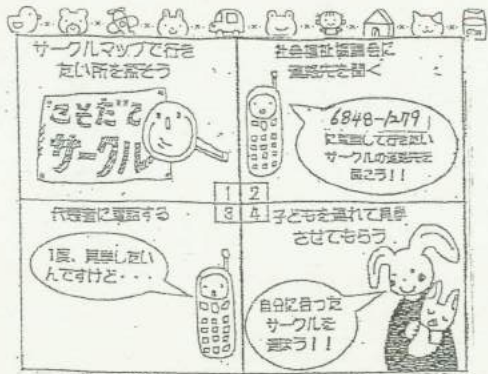 サークルマップで行き
たい所を探そう
こそだて
サークル
1
社会福祉協議会に
連絡先を聞く
6848-1279
に電話して行きたい
サークルの連絡先を
聞こう!!
2
代表者に電話する
1度、見学したい
んですけど・・・
3
4
子どもを連れて見学
させてもらう
自分に合った
サークルを
選ぼう!!